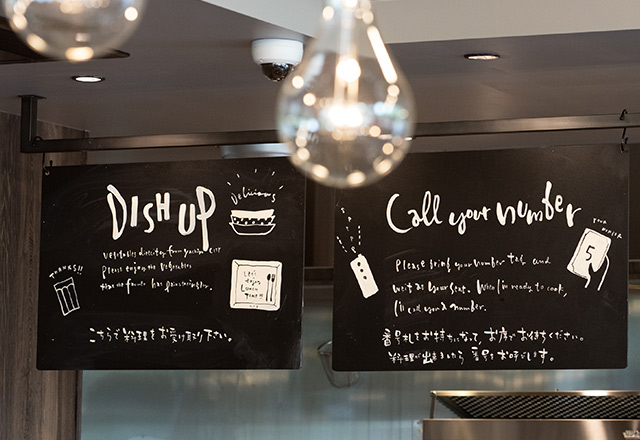 DISH UP
Delicious
Vegetables directly from
Please enjoy the vegetables
that the farmer has
THANKS!!
Let's
enjoy
Lunch
time!!
こちらで料理をお受け取り下さい。
Call your number
YOUR
NUMBER
5
Please bring your number tag, and
wait at your seat. When I'm ready to cook,
I'll call your number.
番号札をお持ちになって、お席でお待ちください。
料理が出来ましたら 番号をお呼びします。